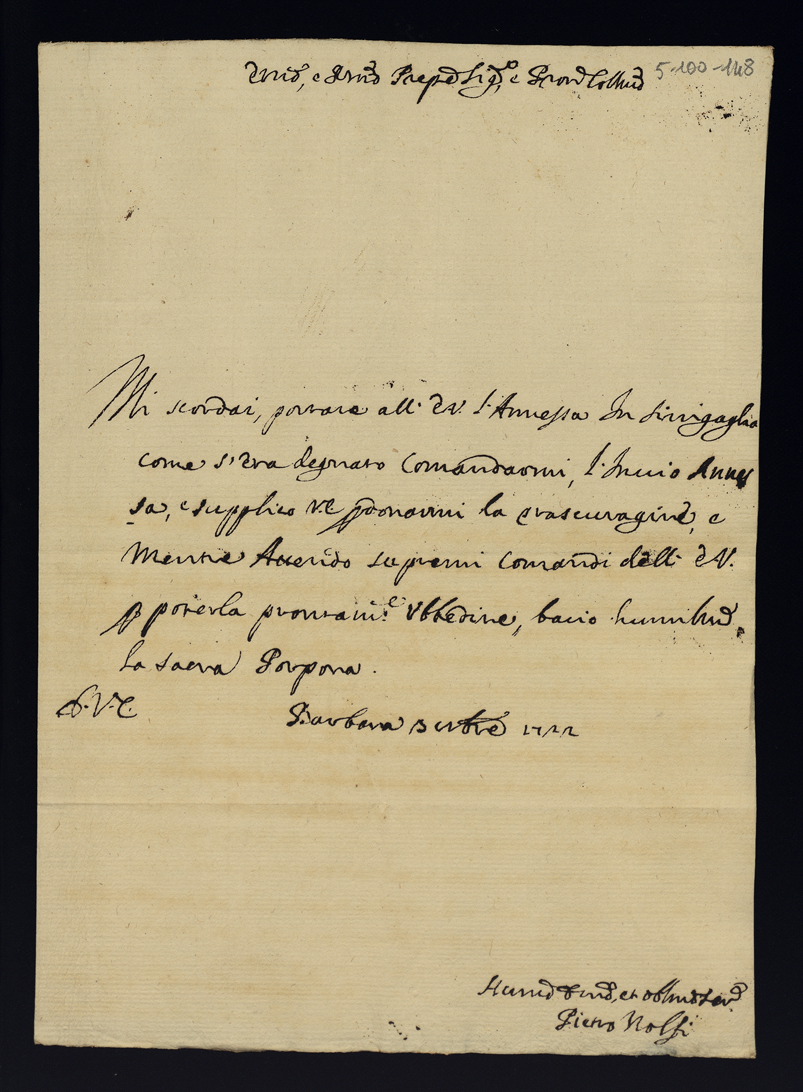 Emo, e Rmo Prep.e Sig.e, e Pron Colmo 5-100-148
Mi scordai, portare all' E.V. l'Annessa In Sinigaglia
come s'era degnato Comandarmi, l'Invio Annes
sa, e supplico V.E. pdonarmi la trascuragine, e
Mentre Attendo supremi Comandi dell' E.V.
p poterla prontam.e Ubbedire, bacio humilmo
la sacra Porpora.
D.V.E.
Barbara 3 8tbre 1722
Pietro Nolfi